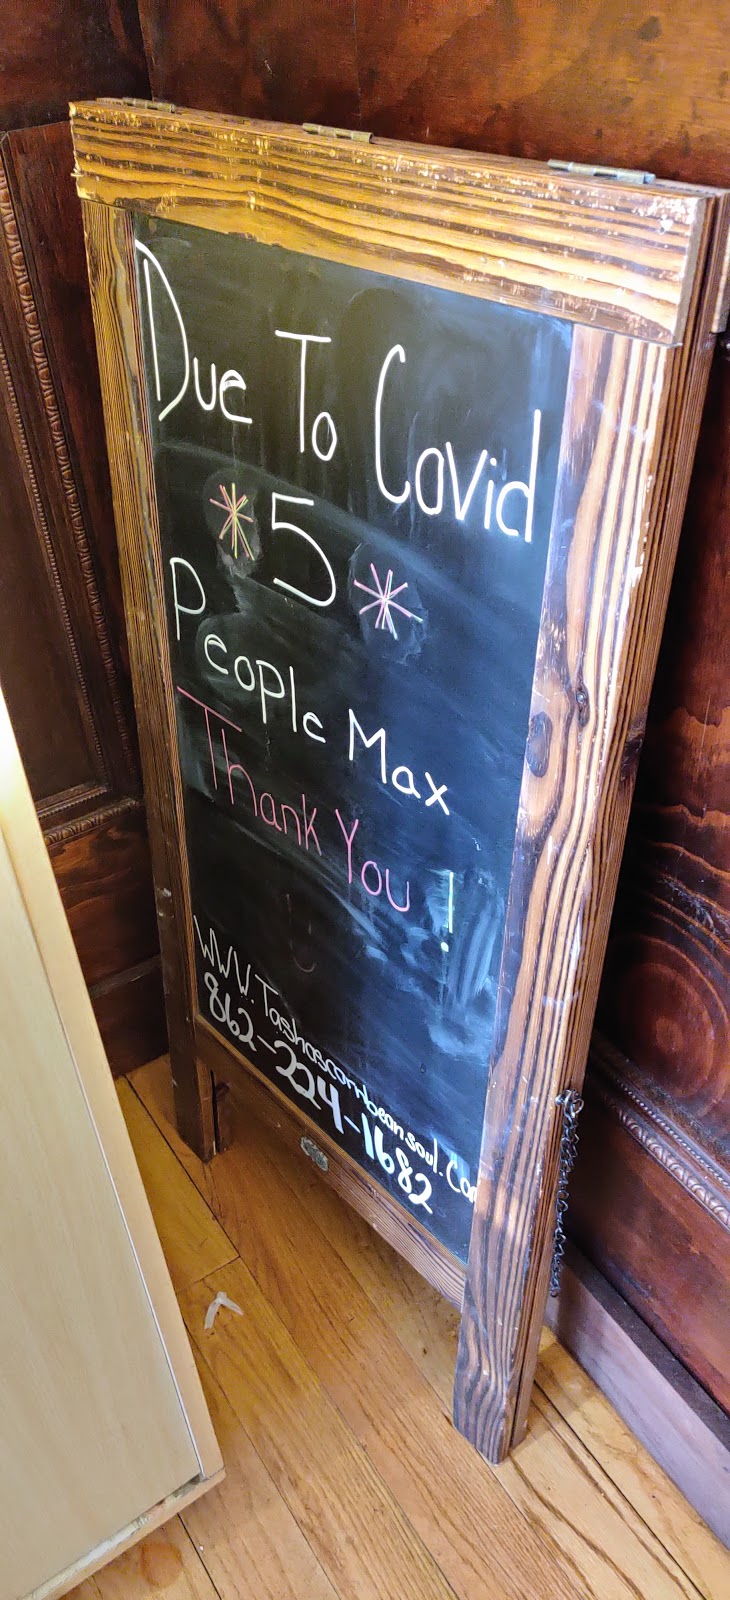 Due To Covid
*5*
People Max
Thank You!
WWW.Tashascarribeansoul.Com
862-224-1682